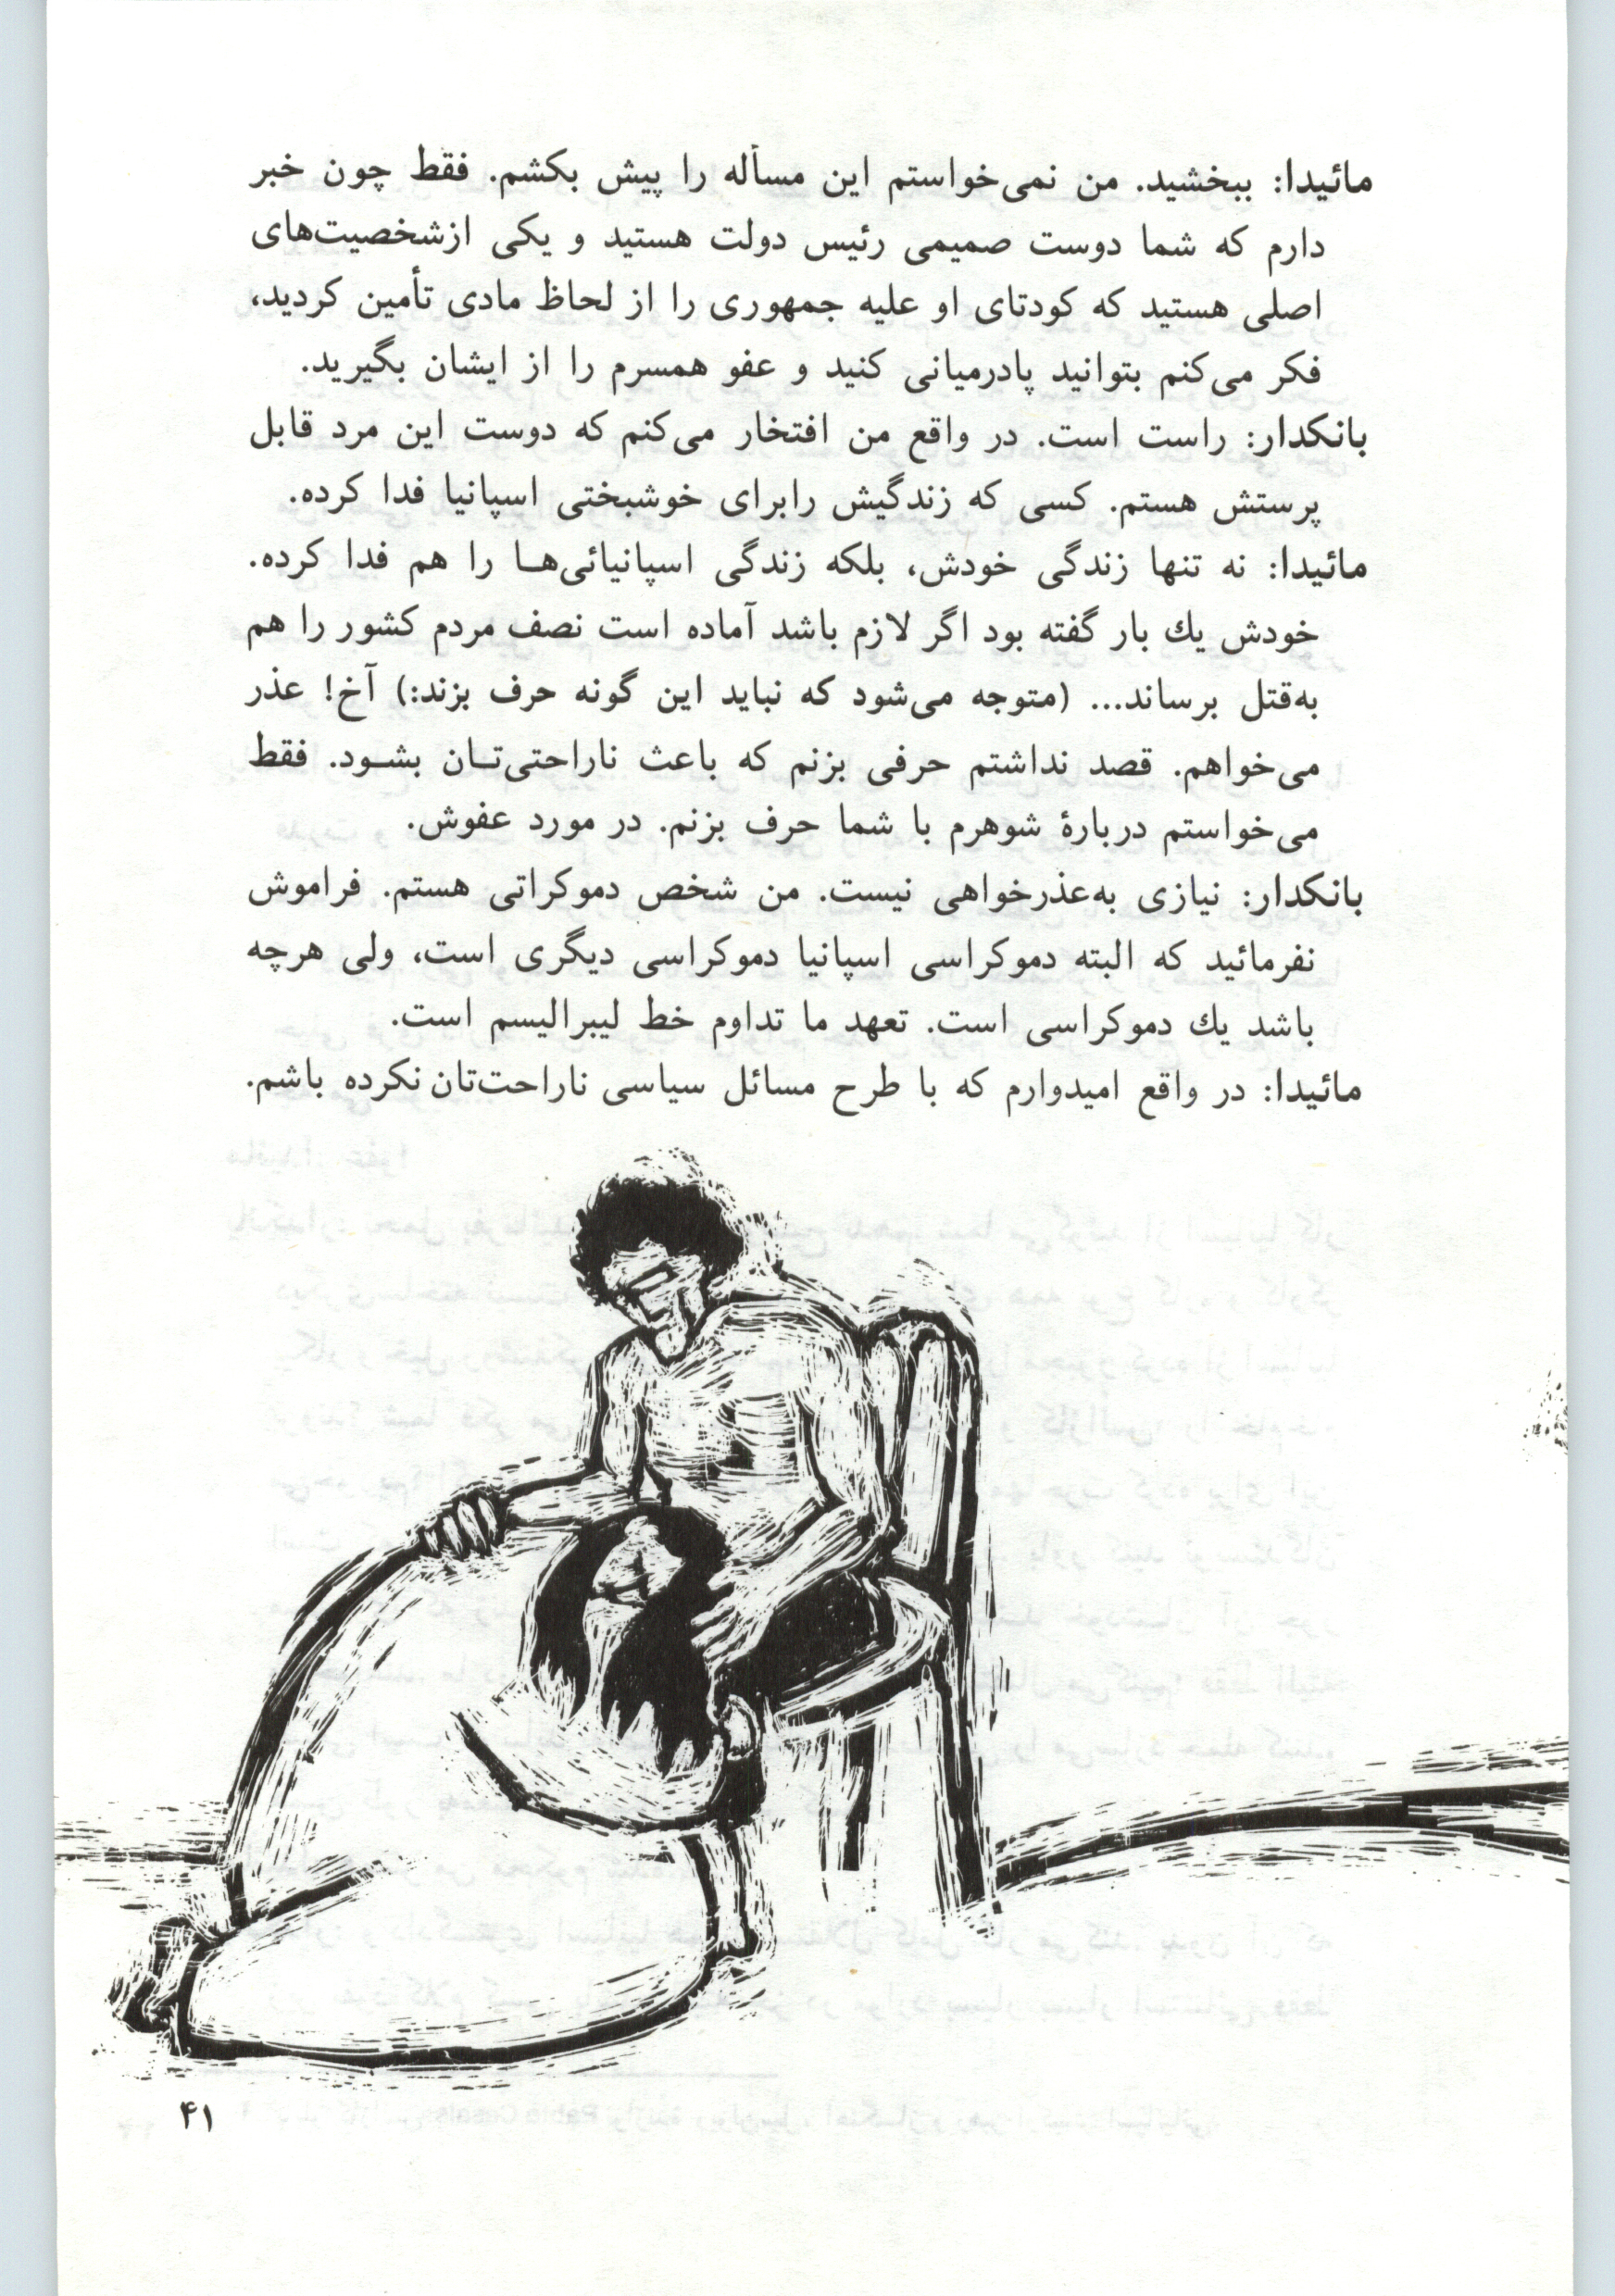 مائیدا: ببخشید. من نمی‌خواستم این مسأله را پیش بکشم. فقط چون خبر
دارم که شما دوست صمیمی رئیس دولت هستید و یکی ازشخصیت‌های
اصلی هستید که کودتای او علیه جمهوری را از لحاظ مادی تأمین کردید،
فکر می‌کنم بتوانید پادرمیانی کنید و عفو همسرم را از ایشان بگیرید.
بانکدار: راست است. در واقع من افتخار می‌کنم که دوست این مرد قابل
پرستش هستم. کسی که زندگیش رابرای خوشبختی اسپانیا فدا کرده.
مائیدا: نه تنها زندگی خودش، بلکه زندگی اسپانیائی‌هـا را هم فدا کرده.
خودش یك بار گفته بود اگر لازم باشد آماده است نصف مردم کشور را هم
به‌قتل برساند... (متوجه می‌شود که نباید این گونه حرف بزند:) آخ! عذر
می‌خواهم. قصد نداشتم حرفی بزنم که باعث ناراحتی‌تـان بشـود. فقط
می‌خواستم دربارهٔ شوهرم با شما حرف بزنم. در مورد عفوش.
بانکدار: نیازی به‌عذرخواهی نیست. من شخص دموکراتی هستم. فراموش
نفرمائید که البته دموکراسی اسپانیا دموکراسی دیگری است، ولی هرچه
باشد یك دموکراسی است. تعهد ما تداوم خط لیبرالیسم است.
مائیدا: در واقع امیدوارم که با طرح مسائل سیاسی ناراحت‌تان نکرده باشم.
۴۱